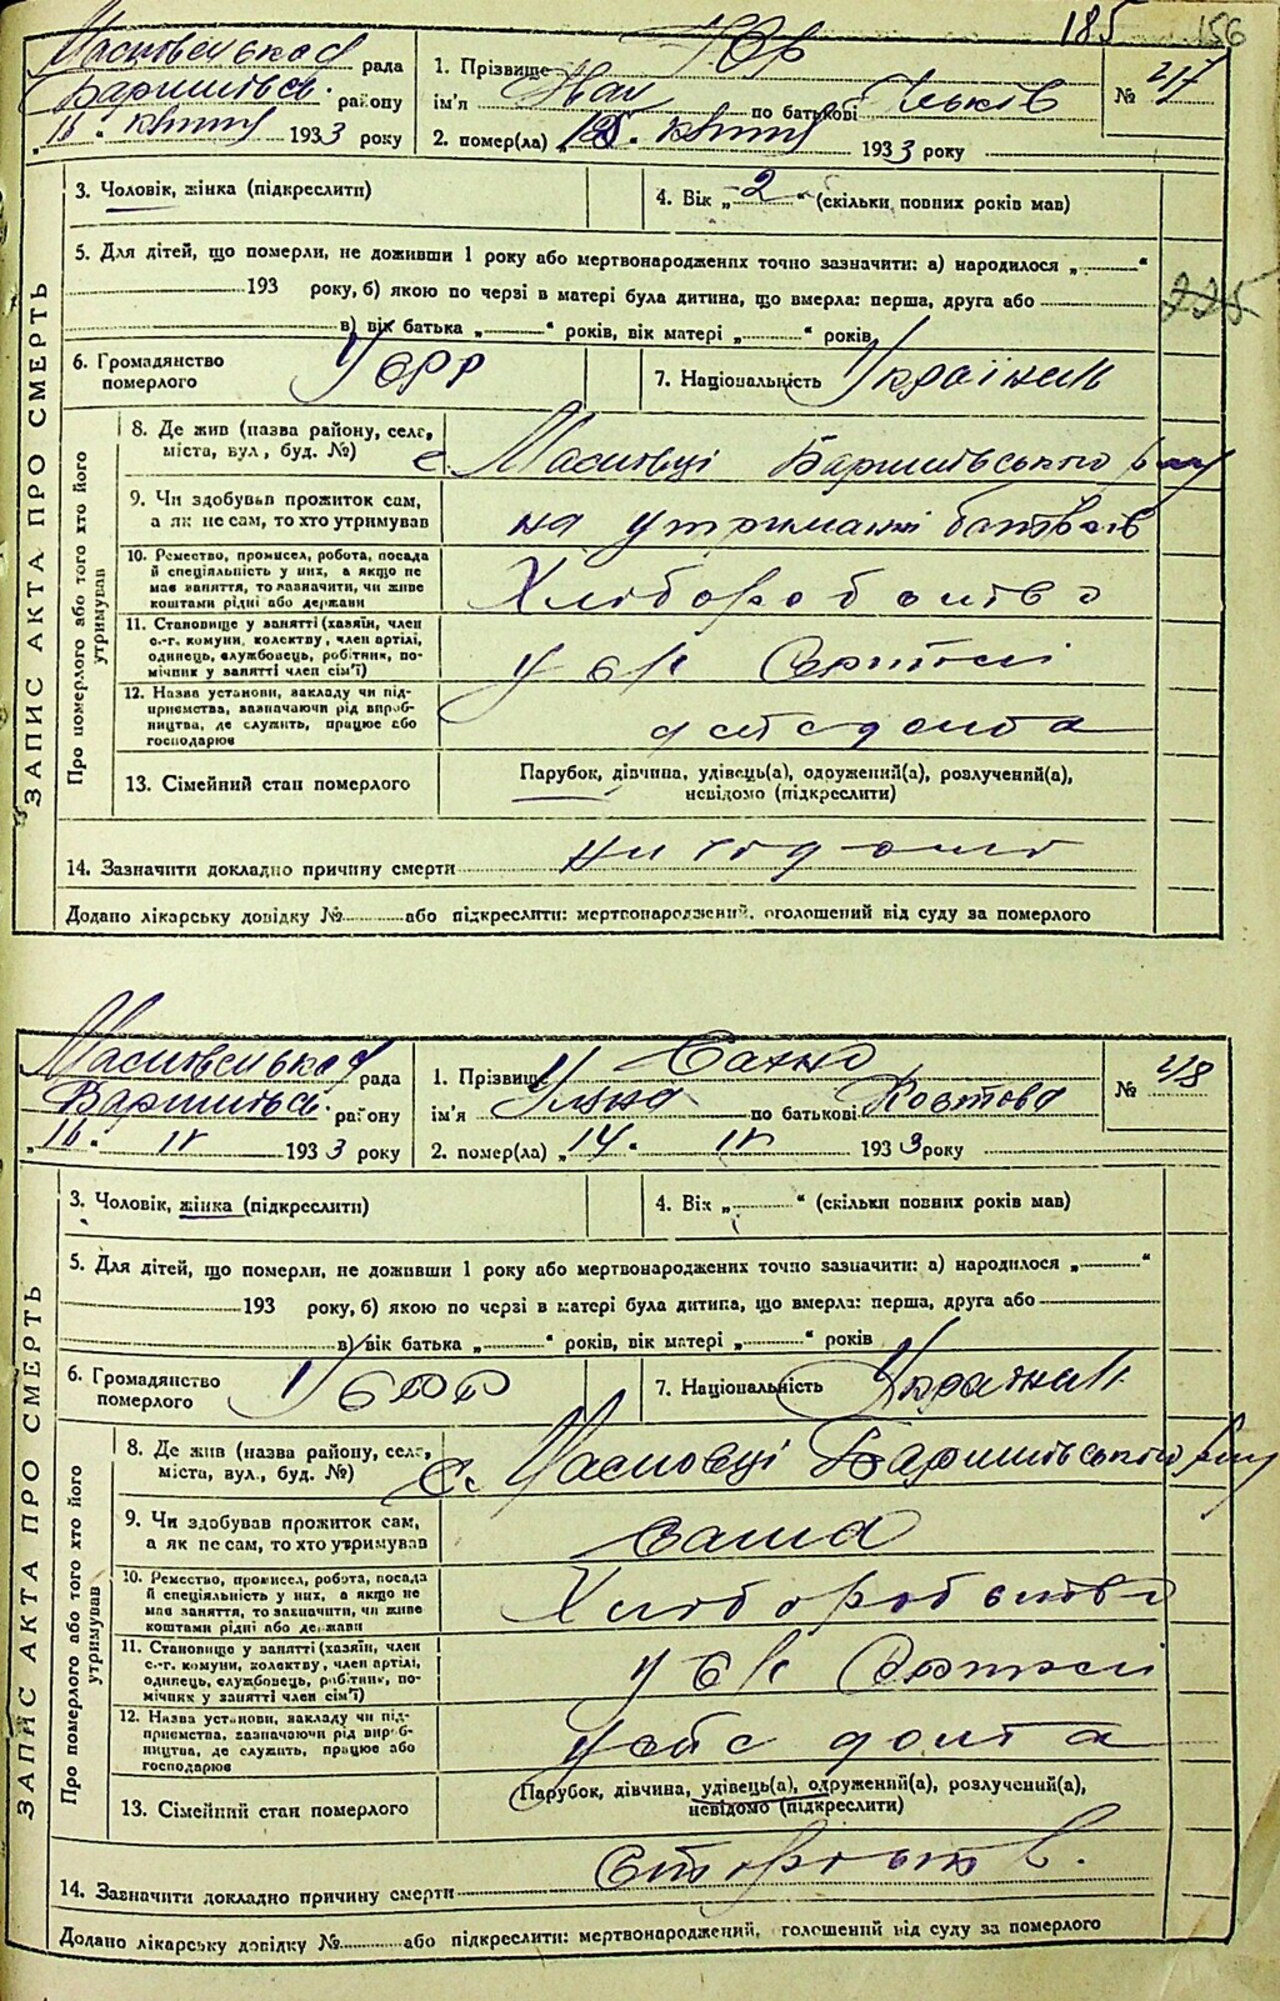 185 156
Масковецька рада
Баришівсь. району
„16“ квітня 1933 року
1. Прізвище
ім'я Іван по батькові Ільків
2. помер(ла) „ “ квітня 1933 року
№ 217
ЗАПИС АКТА ПРО СМЕРТЬ
3. Чоловік, жінка (підкреслити)
4. Вік „2“ (скільки повних років мав)
5. Для дітей, що померли, не доживши 1 року або мертвонароджених точно зазначити: а) народилося „ “
193 року, б) якою по черзі в матері була дитина, що вмерла: перша, друга або
в) вік батька „ “ років, вік матері „ “ років
225
6. Громадянство померлого УСРР
7. Національність Українець
Про померлого або того хто його утримував
8. Де жив (назва району, село,
міста, вул., буд. №)
с. Масківці Баришівського р-ну
9. Чи здобував прожиток сам,
а як не сам, то хто утримував
на утриманні батьків
10. Ремество, промисел, робота, посада
й спеціяльність у них, а якщо не
має заняття, то зазначити, чи живе
коштами рідні або держави
Хліборобство
11. Становище у занятті (хазяїн, член
с.-г. комуни, колектву, член артілі,
одинець, службовець, робітник, по-
мічник у занятті член сім'ї)
у с/г артілі
12. Назва установи, закладу чи під-
приємства, зазначаючи рід вироб-
ництва, де служить, працює або
господарює
13. Сімейний стан померлого
Парубок, дівчина, удівець(а), одружений(а), розлучений(а),
невідомо (підкреслити)
14. Зазначити докладно причину смерти
Додано лікарську довідку № або підкреслити: мертвонароджений, оголошений від суду за померлого
Масковецька рада
Баришівсь. району
„16“ IV 1933 року
1. Прізвище Сахно
ім'я Уляна по батькові
2. помер(ла) „14“ IV 1933 року
№ 218
ЗАПИС АКТА ПРО СМЕРТЬ
3. Чоловік, жінка (підкреслити)
4. Вік „ “ (скільки повних років мав)
5. Для дітей, що померли, не доживши 1 року або мертвонароджених точно зазначити: а) народилося „ “
193 року, б) якою по черзі в матері була дитина, що вмерла: перша, друга або
в) вік батька „ “ років, вік матері „ “ років
6. Громадянство померлого УСРР
7. Національність Українк
Про померлого або того хто його утримував
8. Де жив (назва району, село,
міста, вул., буд. №)
С. Масківці Баришівського р-ну
9. Чи здобував прожиток сам,
а як не сам, то хто утримував
сама
10. Ремество, промисел, робота, посада
й спеціяльність у них, а якщо не
має заняття, то зазначити, чи живе
коштами рідні або держави
Хліборобство
11. Становище у занятті (хазяїн, член
с.-г. комуни, колектву, член артілі,
одинець, службовець, робітник, по-
мічник у занятті член сім'ї)
у с/г артілі
12. Назва установи, закладу чи під-
приємства, зазначаючи рід вироб-
ництва, де служить, працює або
господарює
13. Сімейний стан померлого
Парубок, дівчина, удівець(а), одружений(а), розлучений(а),
невідомо (підкреслити)
14. Зазначити докладно причину смерти
Додано лікарську довідку № або підкреслити: мертвонароджений, оголошений від суду за померлого